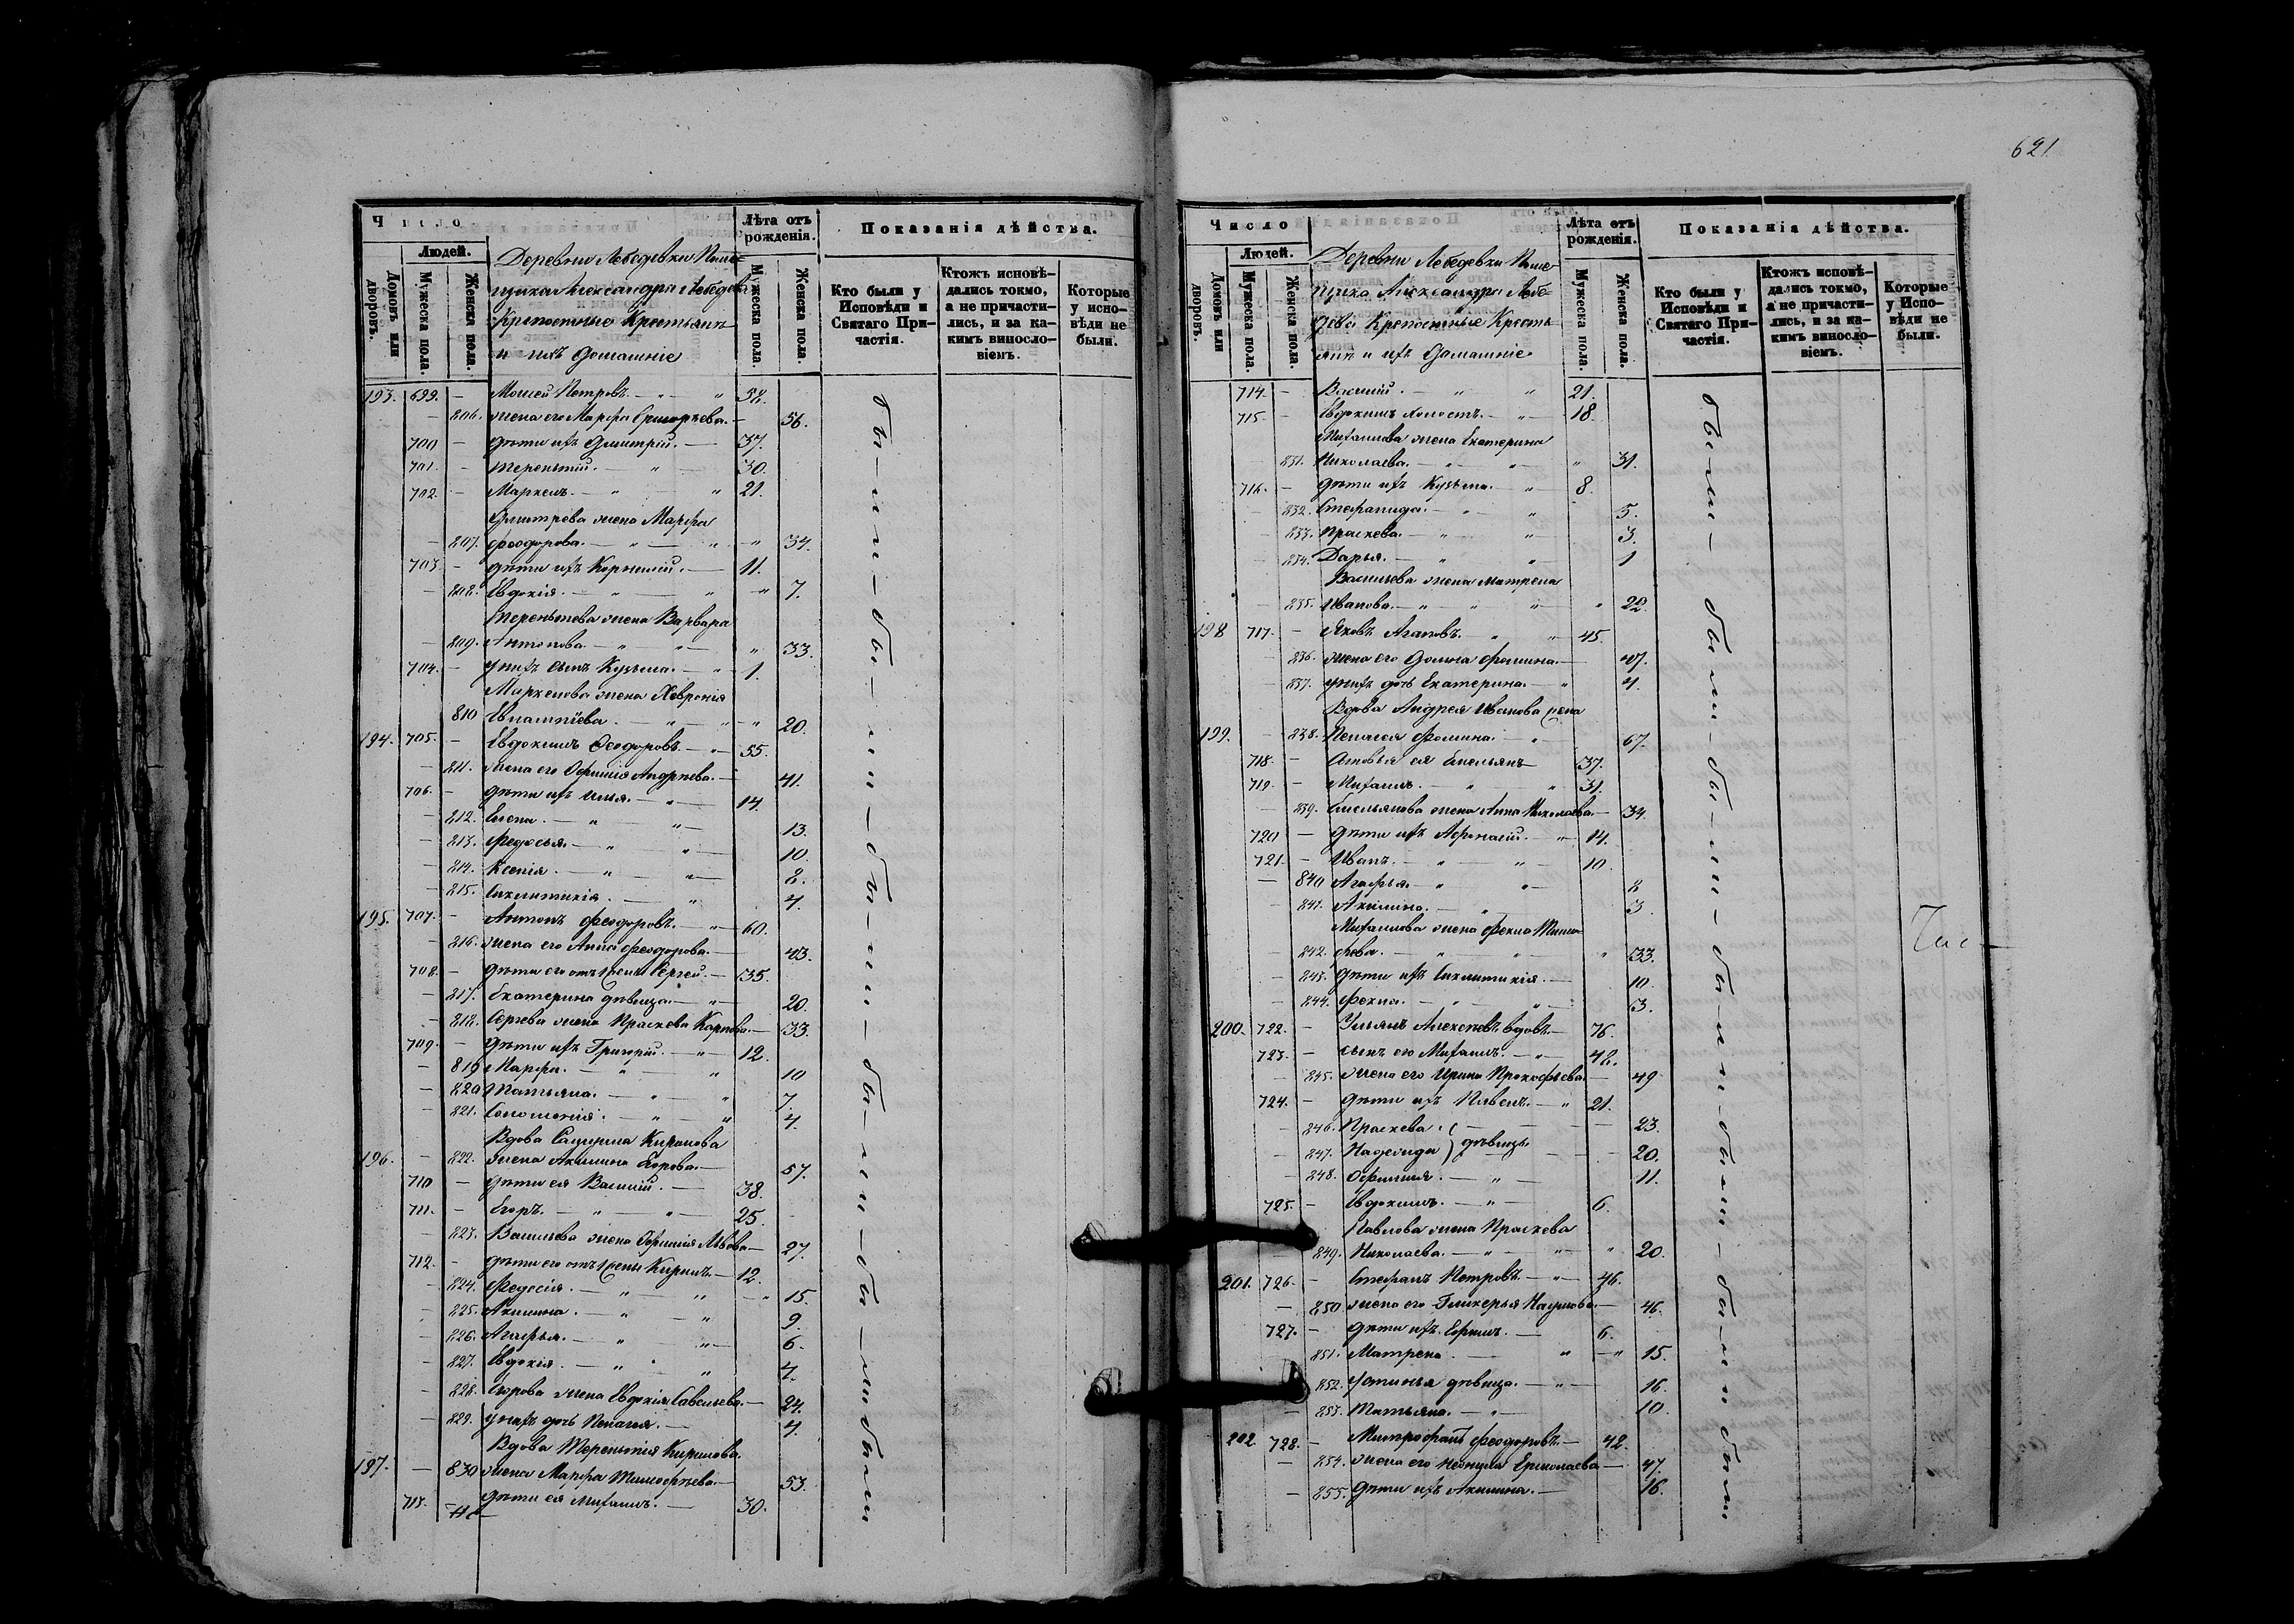 Число
Людей.
Домовъ или дворовъ.
Мужеска пола.
Женска пола.
Деревни Лебедевки Поме-
щика Александра Лебедева
Крепостные Крестьяне
и ихъ домашніе
Лѣта отъ рожденія.
Мужеска пола.
Женска пола.
Показанія дѣйства.
Кто были у Исповѣди и Святаго При-частія.
Ктожъ исповѣ-дались токмо, а не причасти-лись, и за ка-кимъ винословіемъ.
Которые у испо-вѣди не были.
193. 699. — Моисей Петровъ. 52.
806. жена его Марфа Григорьева. 56.
700 — дѣти ихъ Дмитрій. 37.
701. — Терентій. 30.
702. — Маркелъ. 21.
Дмитрева жена Марфа
807. Феодорова. 34.
703 — дѣти ихъ Корнилій. 11.
808. Евдокія. 7.
Терентьева жена Варвара
809. Антонова. 33.
704. — у нихъ сынъ Кузьма. 1.
Маркелова жена Хевронія
810 Евлампіева. 20.
194. 705. — Евдокимъ Феодоровъ. 55.
811. жена его Офимія Андрѣева. 41.
706. — дѣти ихъ Илья. 14.
812. Елена. 13.
813. Федосья. 10.
814. Ксенія. 8.
815. Екклитикія. 4.
195. 707. — Антонъ Феодоровъ. 60.
816. жена его Анна Феодорова. 43.
708. — дѣти его отъ 1 жены Сергей. 35.
817. Екатерина дѣвица. 20.
818. Сергѣева жена Праскева Карпова. 33.
709. — дѣти ихъ Григорій. 12.
819 Марфа. 10
820 Татьяна. 7.
821. Соломонія. 4.
Вдова Кирилова
196. — 822. жена Акилина Егорова. 57.
710 — дѣти ея Василій. 38.
711. — Егоръ. 25.
823. Васильева жена Офимія Львова 27.
712. — дѣти его отъ 1 жены Кирилъ. 12.
824. Федосія. 15.
825. Акилина. 9.
826. Агафья. 6.
827. Евдокія. 4.
828. Егорова жена Евдокія Савельева. 24.
829. у нихъ дочь Пелагея. 4.
Вдова Терентія Кирилова
197. — 830 жена Марфа Тимофѣева. 53.
713. дѣти ея Михаилъ. 30.
бы—ли—бы—ли—бы—ли—бы—ли—бы—ли были
621
Число
Людей.
Домовъ или дворовъ.
Мужеска пола.
Женска пола.
Деревни Лебедевки Поме
щика Александра Лебе-
дева Крепостные Кресть
яне и ихъ домашніе
Лѣта отъ рожденія.
Мужеска пола.
Женска пола.
Показанія дѣйства.
Кто были у Исповѣди и Святаго При-частія.
Ктожъ исповѣ-дались токмо, а не причасти-лись, и за ка-кимъ винословіемъ.
Которые у Испо-вѣди не были.
714. — Василій. 21.
715. — Евдокимъ холостъ. 18.
Михаилова жена Екатерина
831. Николаева. 31.
716. — дѣти ихъ Кузьма. 8.
832. Степанида. 5.
833. Праскева. 3.
834. Дарья. 1
Васильева жена Матрена
835. Иванова. 22.
198 717. — Яковъ Агаповъ. 45.
836. жена его Домна Фомина. 47.
837. у нихъ дочь Екатерина. 4.
Вдова Андрея Иванова жена
199. — 838. Пелагея Фомина. 67.
718. — Сыновья ея Емельянъ 37.
719. — Михаилъ. 31.
839. Емельянова жена Анна Николаева. 34.
720 — дѣти ихъ Афонасій. 14.
721. — Иванъ. 10.
840 Агафья. 8
841. Акилина. 3.
Михаилова жена Фекла Тимо
842. фева. 33.
843. дѣти ихъ Екклитикія. 10.
844. Фекла. 3.
200. 722. — Ульянъ Алексѣевъ вдовъ. 76.
723. — сынъ его Михаилъ. 48.
845. жена его Ирина Прокофьева. 49
724. — дѣти ихъ Павелъ. 21.
846. Праскева. 23.
847. Надежда } дѣвицы. 20.
848. Офимія. 11.
725. — Евдокимъ. 6.
Павлова жена Праскева
849. Николаева. 20.
201. 726. — Стефанъ Петровъ. 46.
850 жена его Гликерья Наумова. 46.
727. — дѣти ихъ Ефимъ. 6.
851. Матрена. 15.
852. Устинья дѣвица. 16.
853. Татьяна. 10.
202 728. — Митрофанъ Феодоровъ. 42.
854. жена его Неонила Ермолаева 47.
855. дѣти ихъ Акилина. 16.
были—были—бы—ли—бы—ли—были—были были